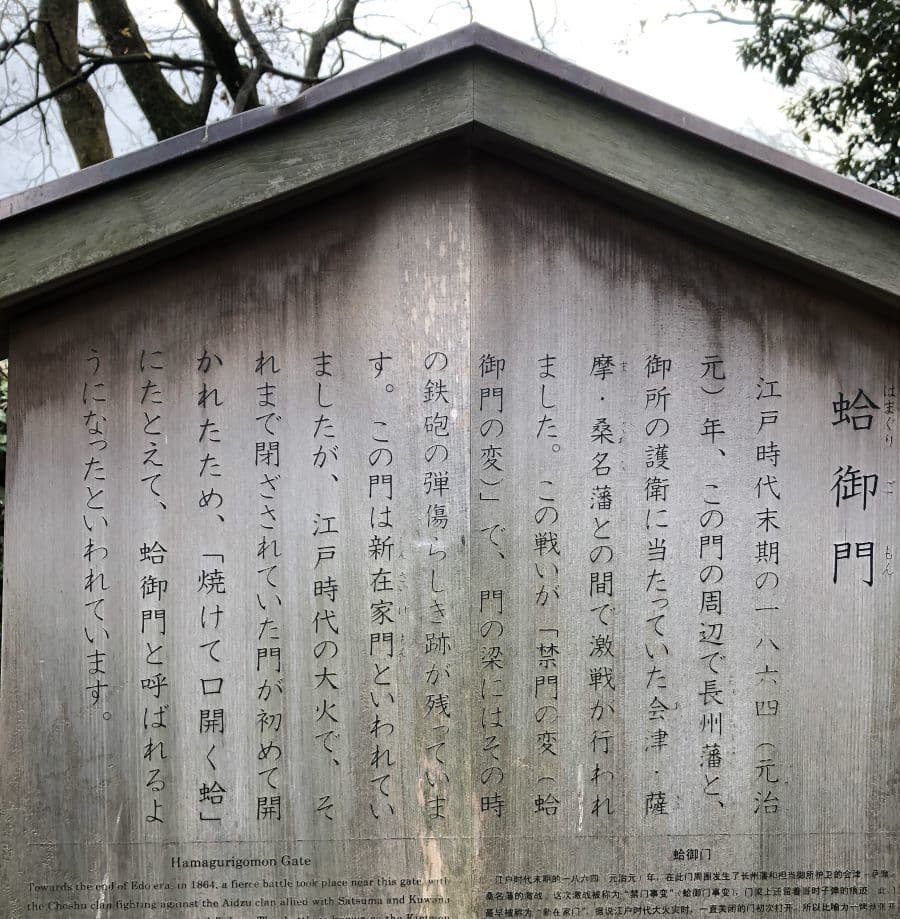 蛤御門
はまぐり ご もん
江戸時代末期の一八六四（元治
元）年、この門の周辺で長州藩と、
御所の護衛に当たっていた会津・薩
摩・桑名藩との間で激戦が行われ
ました。この戦いが「禁門の変（蛤
御門の変）」で、門の梁にはその時
の鉄砲の弾傷らしき跡が残っていま
す。この門は新在家門といわれてい
ましたが、江戸時代の大火で、そ
れまで閉ざされていた門が初めて開
かれたため、「焼けて口開く蛤」
にたとえて、蛤御門と呼ばれるよ
うになったといわれています。
Hamagurigomon Gate
Towards the end of Edo era, in 1864, a fierce battle took place near this gate, with
the Choshu clan fighting against the Aidzu clan allied with Satsuma and Kuwana
蛤御门
江户时代末期的一八六四（元治元）年，在此门周围发生了长州藩和担当御所护卫的会津・萨摩
桑名藩的激战。这次激战被称为“禁门事变”（蛤御门事变），门梁上还留着当时子弹的痕迹。此
最早被称为“新在家门”。据说江户时代大火灾时，一直关闭的门初次打开，所以比喻为